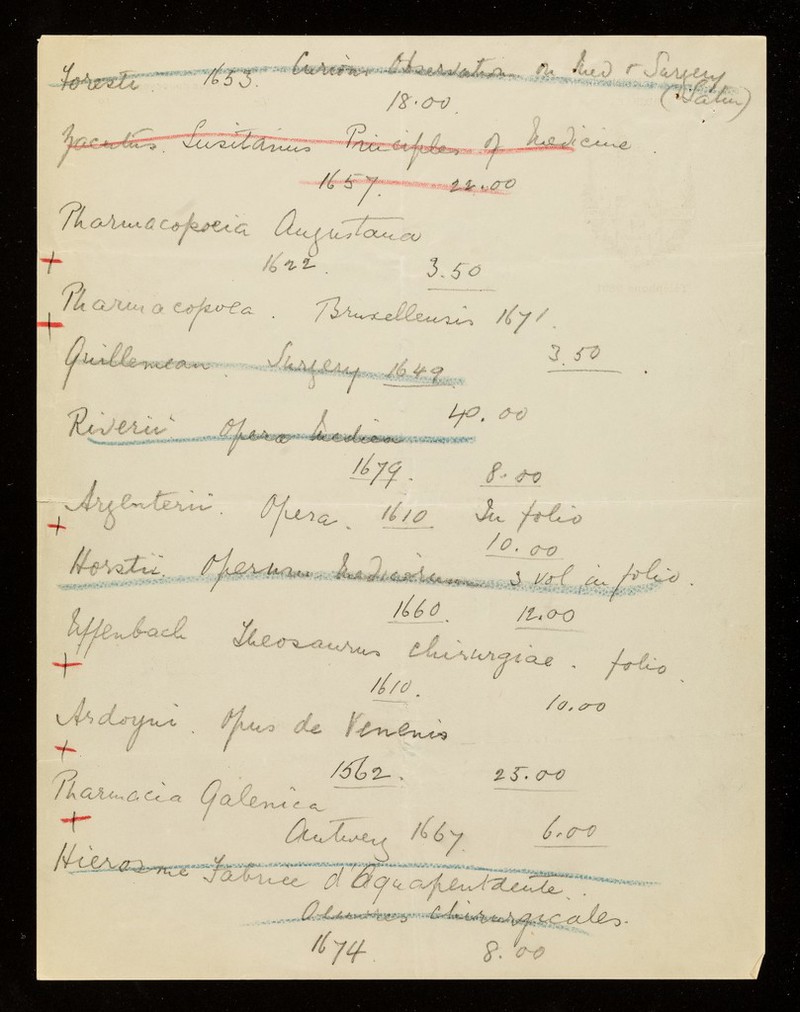 Foresti 1653. Curious Observation on Med & Surgery
(Latin)
18.00
Zacutus. Lusitanus Principles of Medicine.
1657. 22.00
Pharmacopoeia Augustana
1622. 3.50
Pharmacopoea. Bruxellensis 1671.
3.50
Guillemeau. Surgery 1649.
40.00
Riverii Opera Medica
1679. 8.00
Argenterii. Opera. 1610. In folio
10.00
Horstii. Operum Medicorum 3 vol in folio.
1660. 12.00
Uffenbach Theosaurus chirurgiae. folio.
1610. 10.00
Ardoyni. Opus de Venenis
1562. 25.00
Pharmacia Galenica
Antwerp 1667. 6.00
Hierosme Fabrice d'Aquapendente.
Oeuvres Chirurgicales.
1674. 8.00